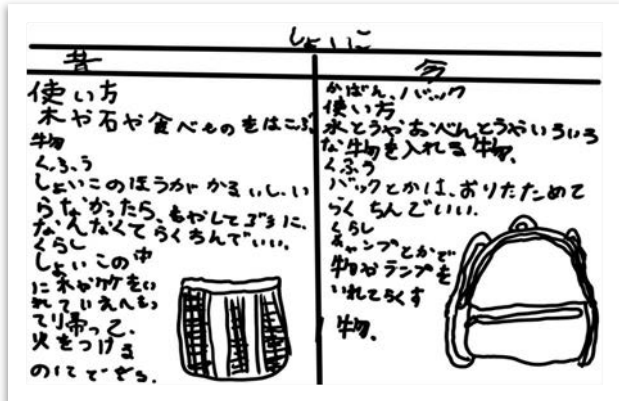 しょいこ
昔
使い方
木や石や食べものをはこぶ
物
くふう
しょいこのほうが かるいし、い
らなかったら、もやして
なんなくてらくちんでいい。
くらし
しょいこの中
に木や竹をい
れていえへも
って帰って、
火をつける
のにできる。
今
かばん、バック
使い方
水とうやおべんとうやいろいろ
な物を入れる物。
くふう
バックとかは、おりたためて
らくちんでいい。
くらし
キャンプとかで
物やランプを
いれてらくす
物。